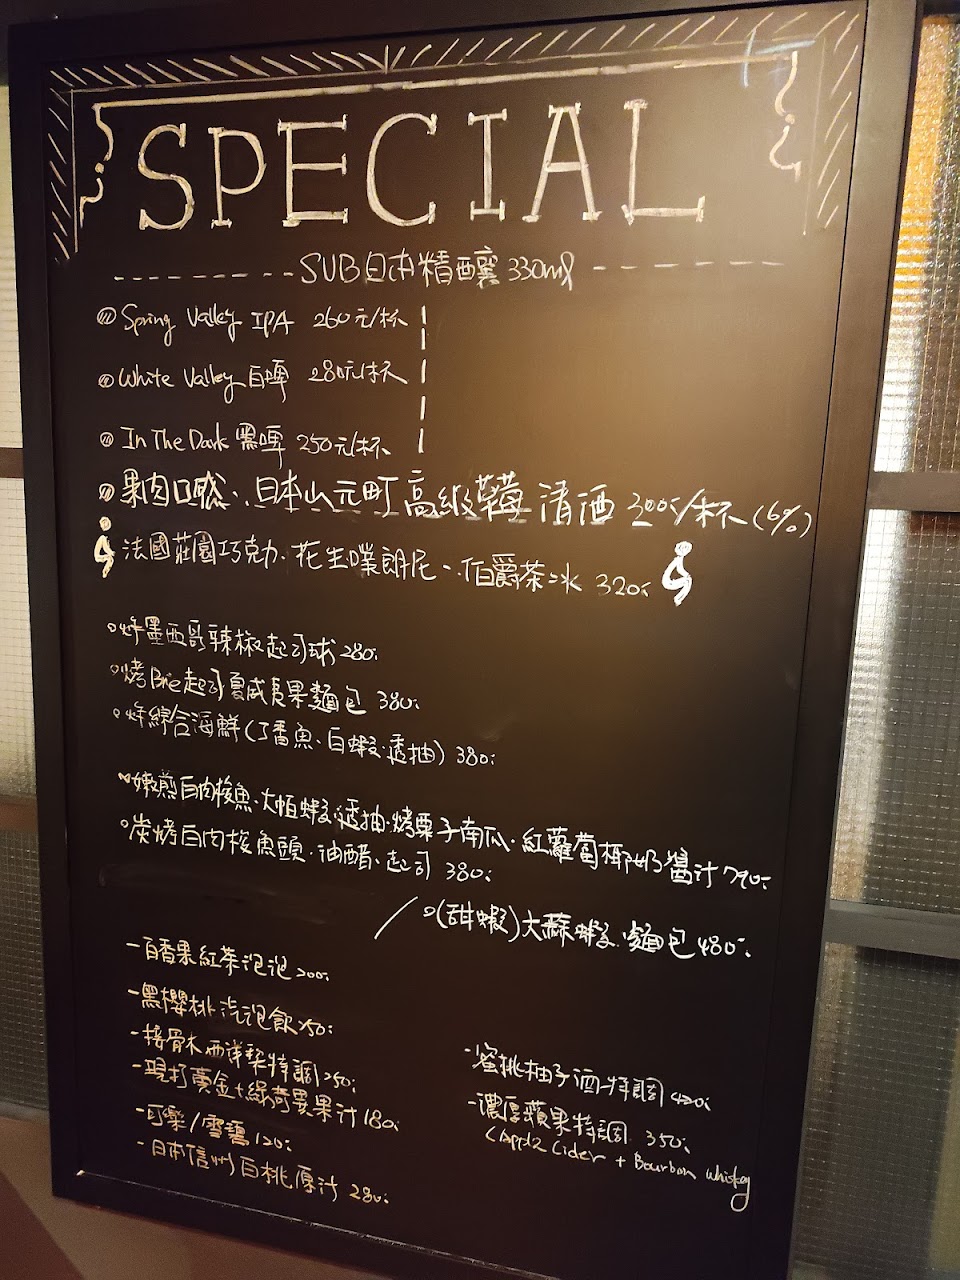 SPECIAL
SUB日本精釀 330ml
Spring Valley IPA 260元/杯
White Valley 白啤 280元/杯
In The Dark 黑啤 250元/杯
果肉口感、日本山元町高級草莓清酒 300/杯 (6%)
法國莊園巧克力、花生嘆朗尼、伯爵茶冰 320
炸墨西哥辣椒起司球 280
烤Brie起司夏威夷果麵包 380
炸綜合海鮮(丁香魚、白蝦、透抽) 380
嫩煎白肉梭魚、大恒蝦、透抽、烤栗子南瓜、紅蘿蔔椰奶醬汁 790
炭烤白肉梭魚頭、油醋、起司 380
(甜蝦)大蒜蝦、麵包 480
-百香果紅茶泡泡 200
-黑櫻桃汽泡飲 250
-接骨木西洋梨特調 250
-現打黃金+綠奇異果汁 180
-可樂/雪碧 120
-日本信州白桃原汁 280
-蜜桃柚子酒特調 420
-濃厚蘋果特調 350
(Apple Cider + Bourbon Whiskey